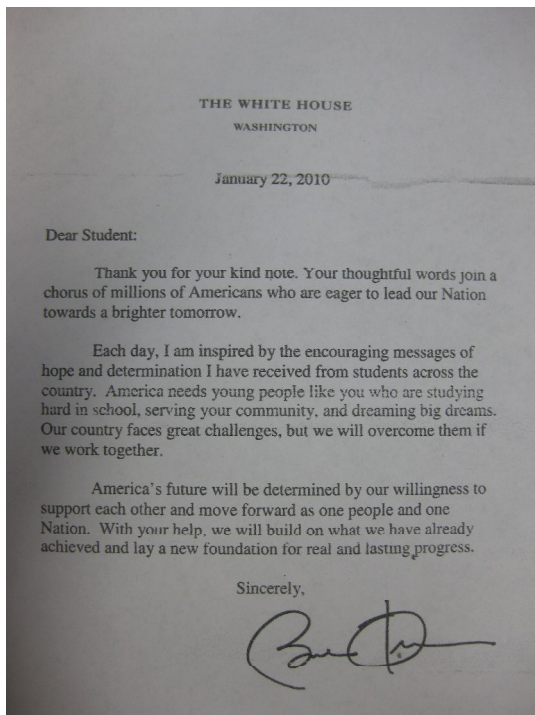 THE WHITE HOUSE
WASHINGTON
January 22, 2010
Dear Student:
Thank you for your kind note. Your thoughtful words join a
chorus of millions of Americans who are eager to lead our Nation
towards a brighter tomorrow.
Each day, I am inspired by the encouraging messages of
hope and determination I have received from students across the
country. America needs young people like you who are studying
hard in school, serving your community, and dreaming big dreams.
Our country faces great challenges, but we will overcome them if
we work together.
America's future will be determined by our willingness to
support each other and move forward as one people and one
Nation. With your help, we will build on what we have already
achieved and lay a new foundation for real and lasting progress.
Sincerely,